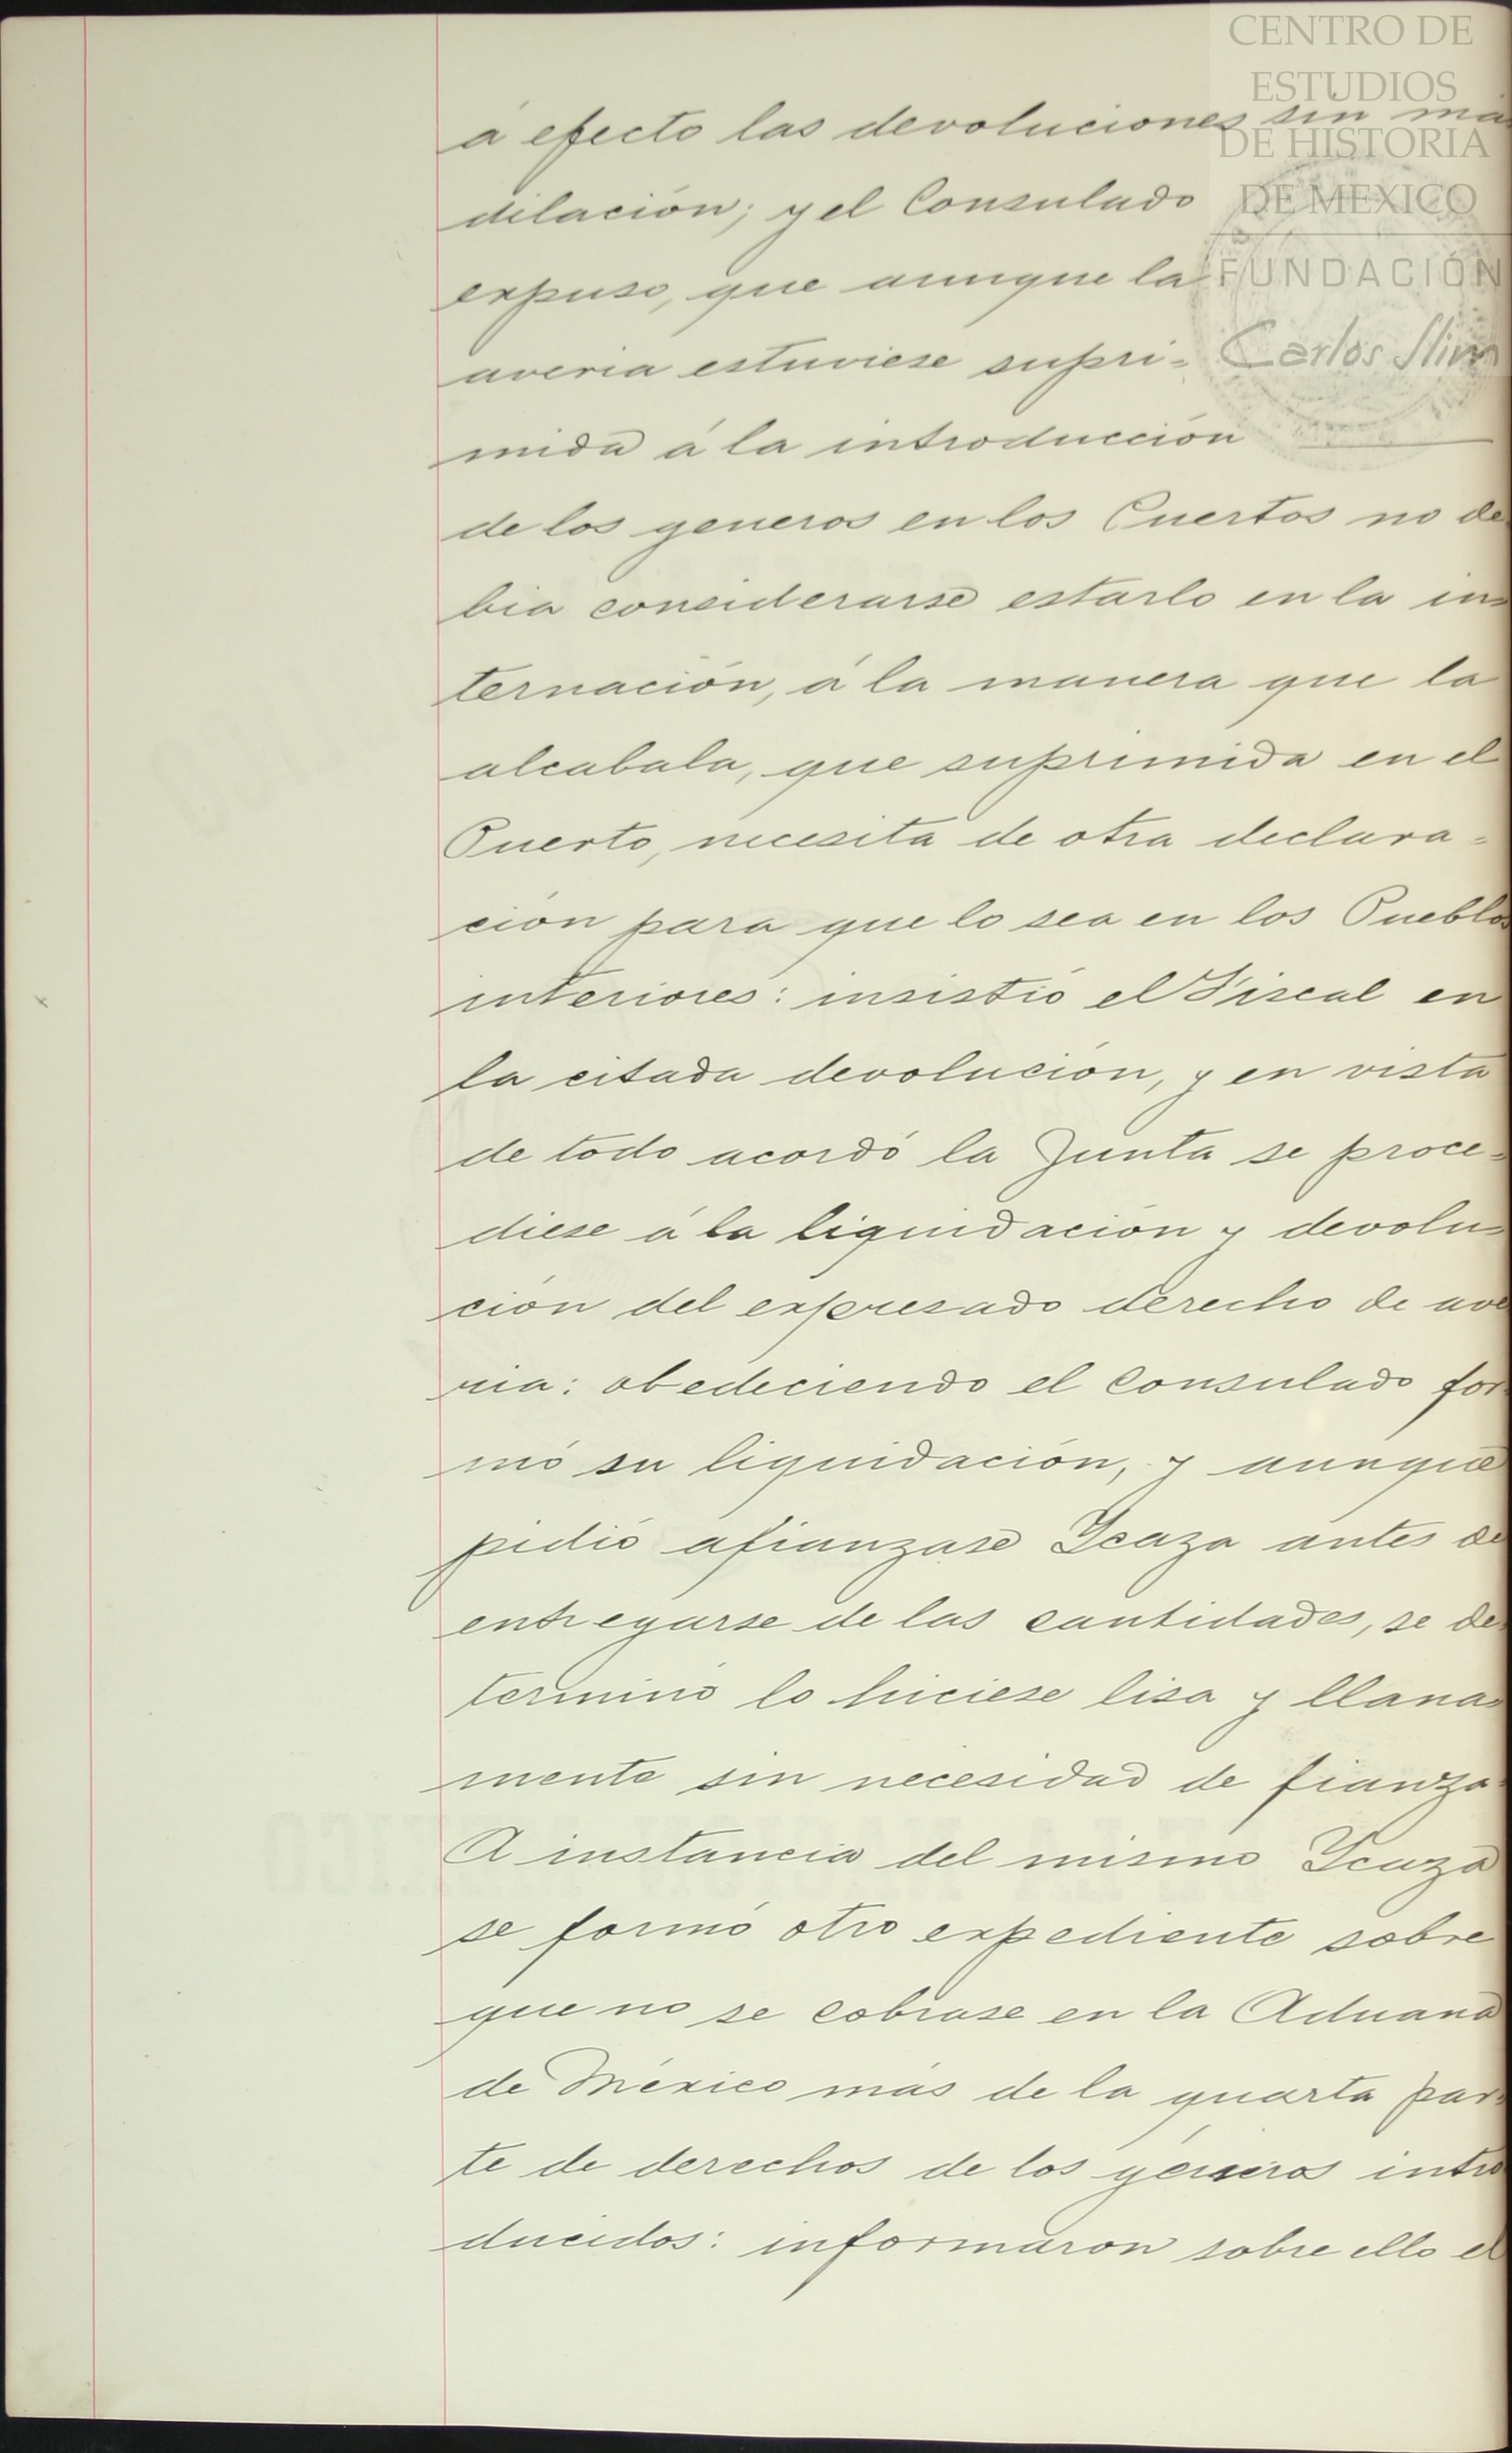 CENTRO DE
ESTUDIOS
DE HISTORIA
DE MEXICO
FUNDACIÓN
Carlos Slim
á efecto las devoluciones sin má
dilación; y el Consulado
expuso, que aunque la
averia estuviese supri=
mida á la introducción
de los generos en los Puertos no de
bia considerarse estarlo en la in=
ternación, á la manera que la
alcabala, que suprimida en el
Puerto, necesita de otra declara=
ción para que lo sea en los Pueblos
interiores: insistió el Fiscal en
la citada devolución, y en vista
de todo acordó la Junta se proce=
diese á la liquidación y devolu=
ción del expresado derecho de ave
ria: obedeciendo el Consulado for
mó su liquidación, y aunque
pidió afianzase Icaza antes de
entregarse de las cantidades, se de
terminó lo hiciese lisa y llana=
mente sin necesidad de fianza.
A instancia del mismo Icaza
se formó otro expediente sobre
que no se cobrase en la Aduana
de México más de la quarta par=
te de derechos de los géneros intro
ducidos: informaron sobre ello el